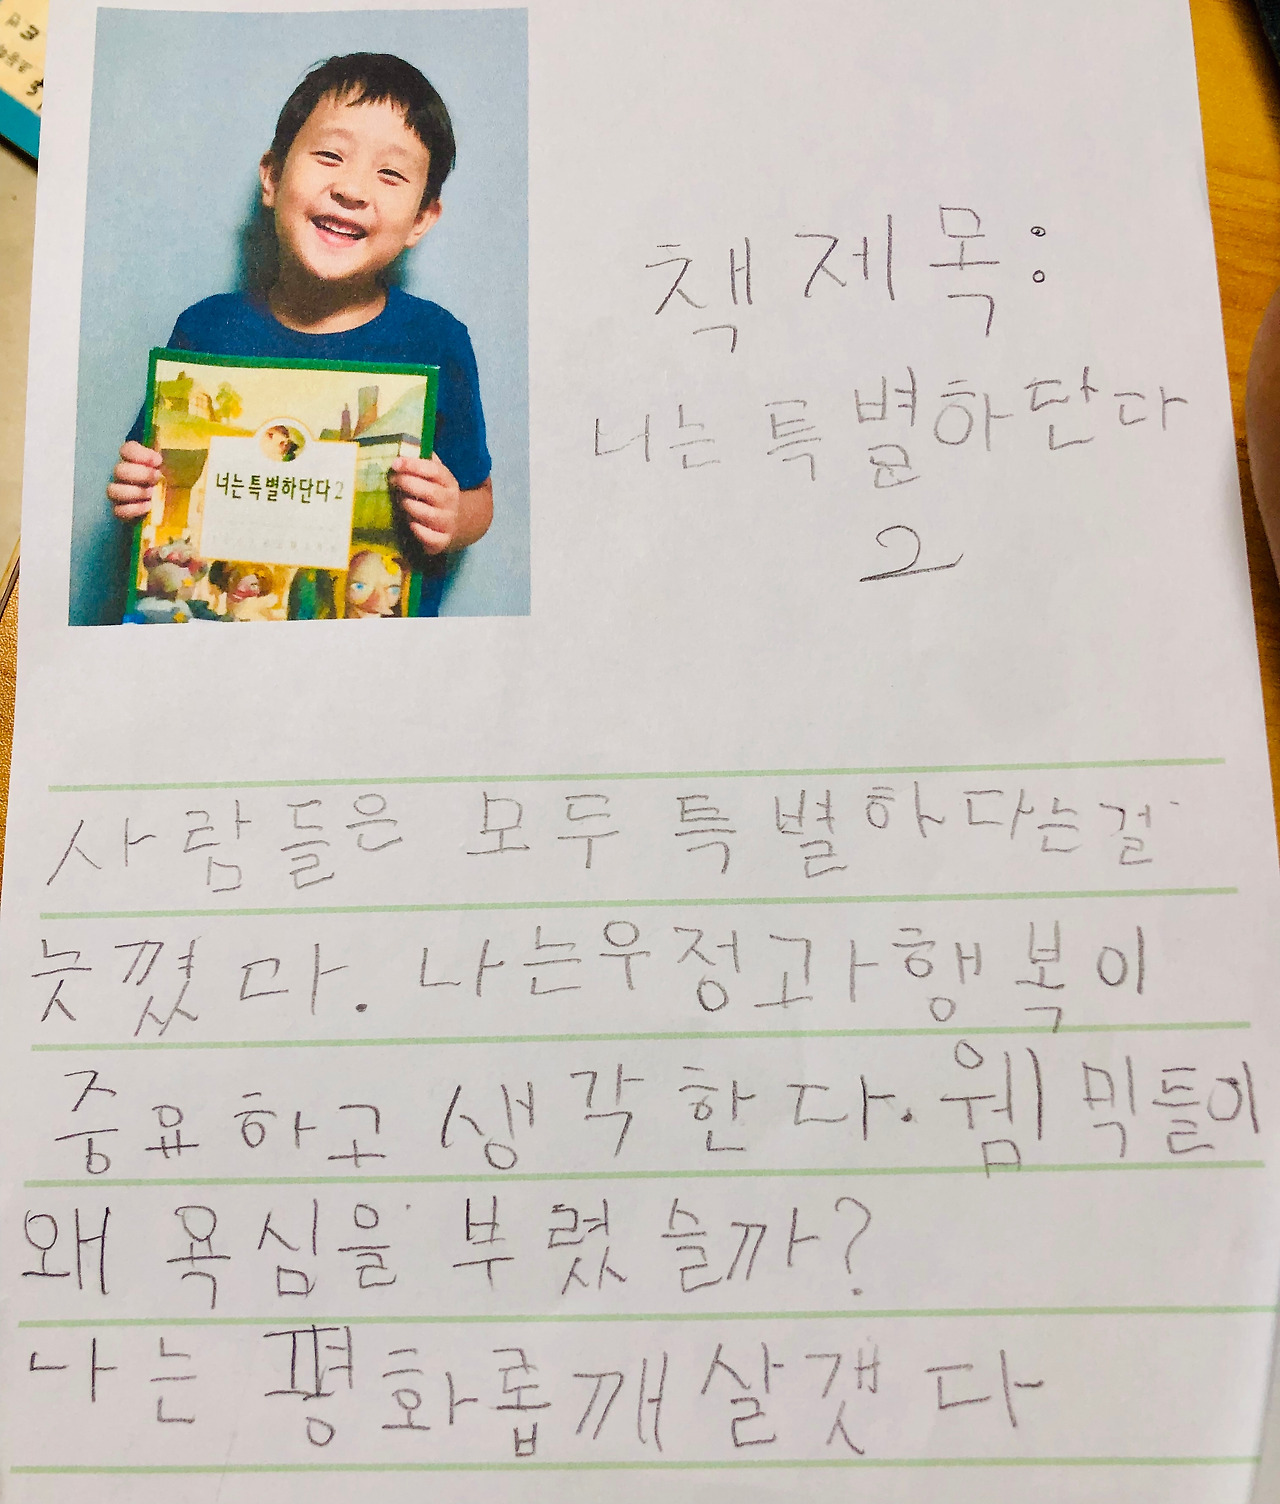 책제목:
너는 특별하단다
2
너는 특별하단다 2
사람들은 모두 특별하다는걸
늣꼈다. 나는우정과 행복이
중요하고 생각한다. 웸믹들이
왜 욕심을 부렸슬까?
나는 평화롭깨 살갯다